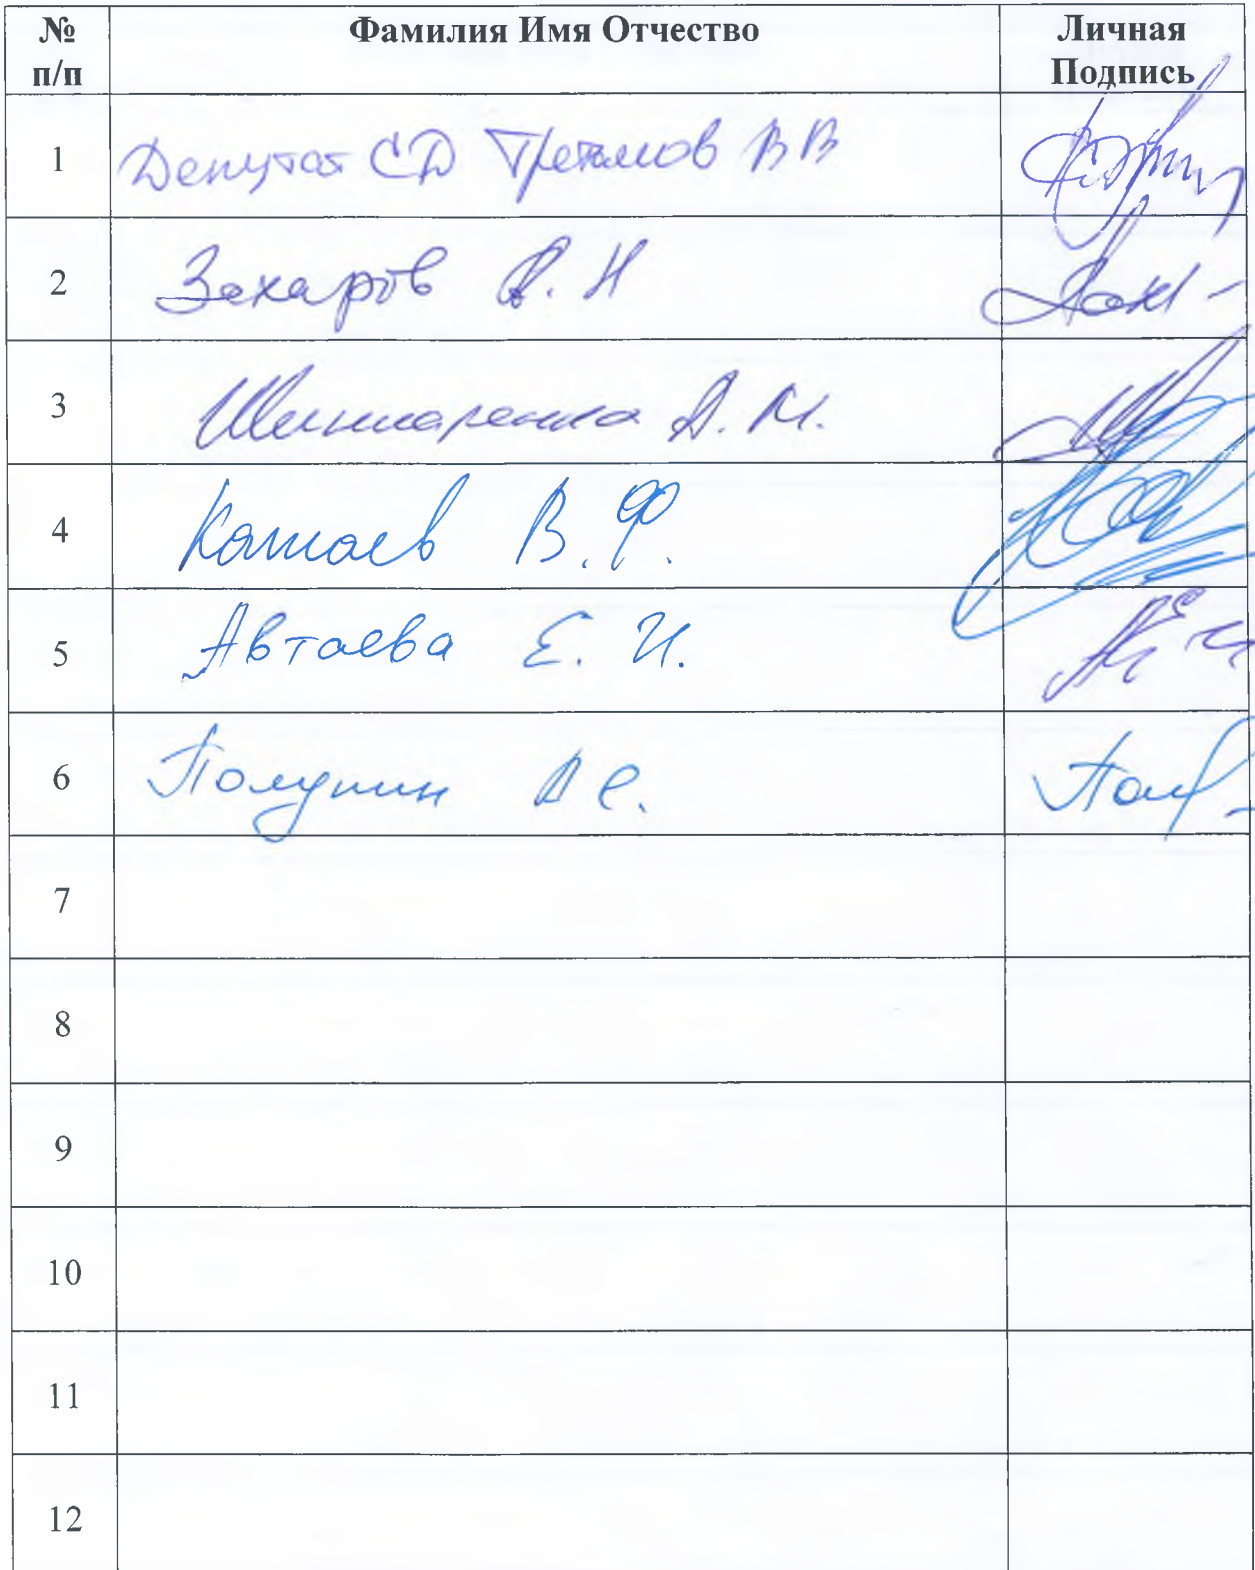 № п/п Фамилия Имя Отчество Личная Подпись
1 Депутат СД В В
2 Захаров А. Н
3 А. М.
4 Катаев В. Ф.
5 Автаева Е. И.
6 Полунин А С.
7
8
9
10
11
12